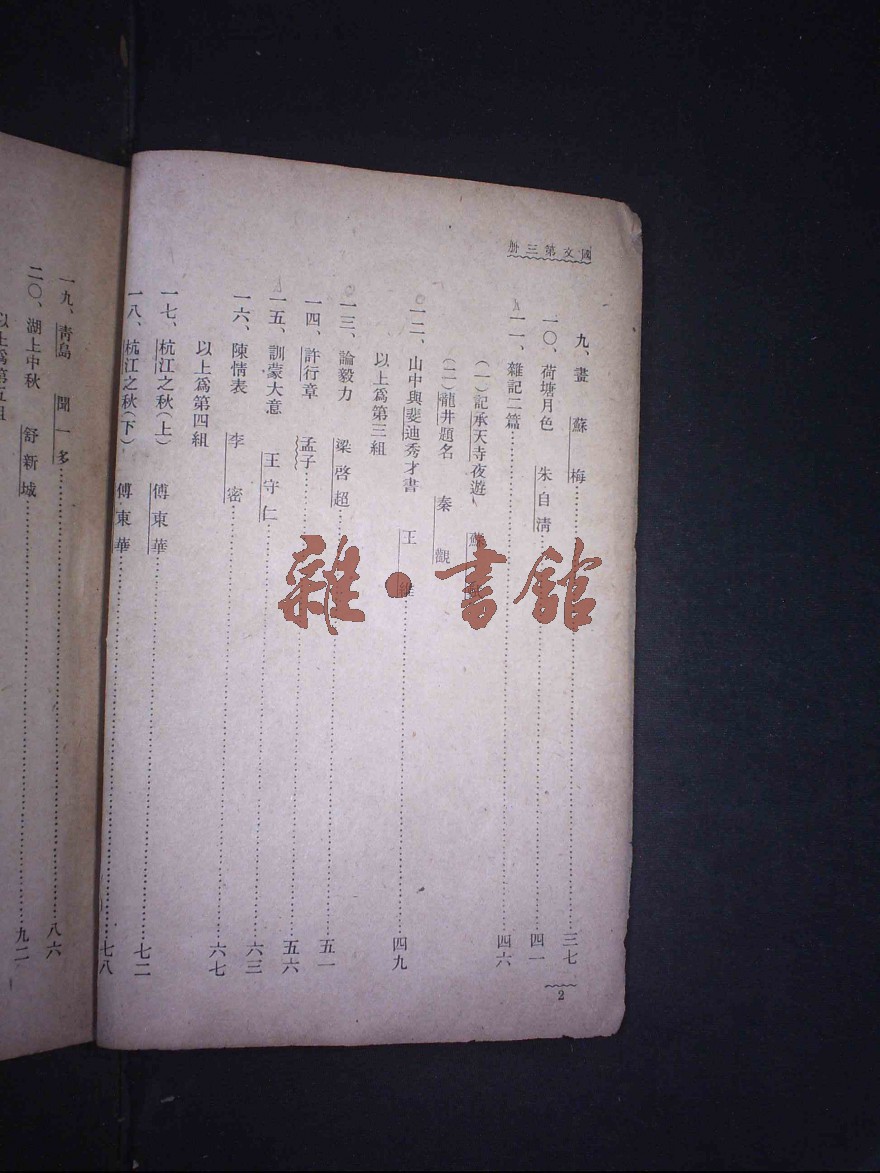 國文第三册
九、畫 蘇梅……三七
一〇、荷塘月色 朱自清……四一
一一、雜記二篇……四六
(一)記承天寺夜遊 蘇
(二)龍井題名 秦觀
一二、山中與裴迪秀才書 王維……四九
以上爲第三組
一三、論毅力 梁啓超……五一
一四、許行章 孟子……五六
一五、訓蒙大意 王守仁……六三
一六、陳情表 李密……六七
以上爲第四組
一七、杭江之秋(上) 傅東華……七二
一八、杭江之秋(下) 傅東華……七八
2
一九、青島 聞一多……八六
二〇、湖上中秋 舒新城……九二
以上爲第五組
雜·書館